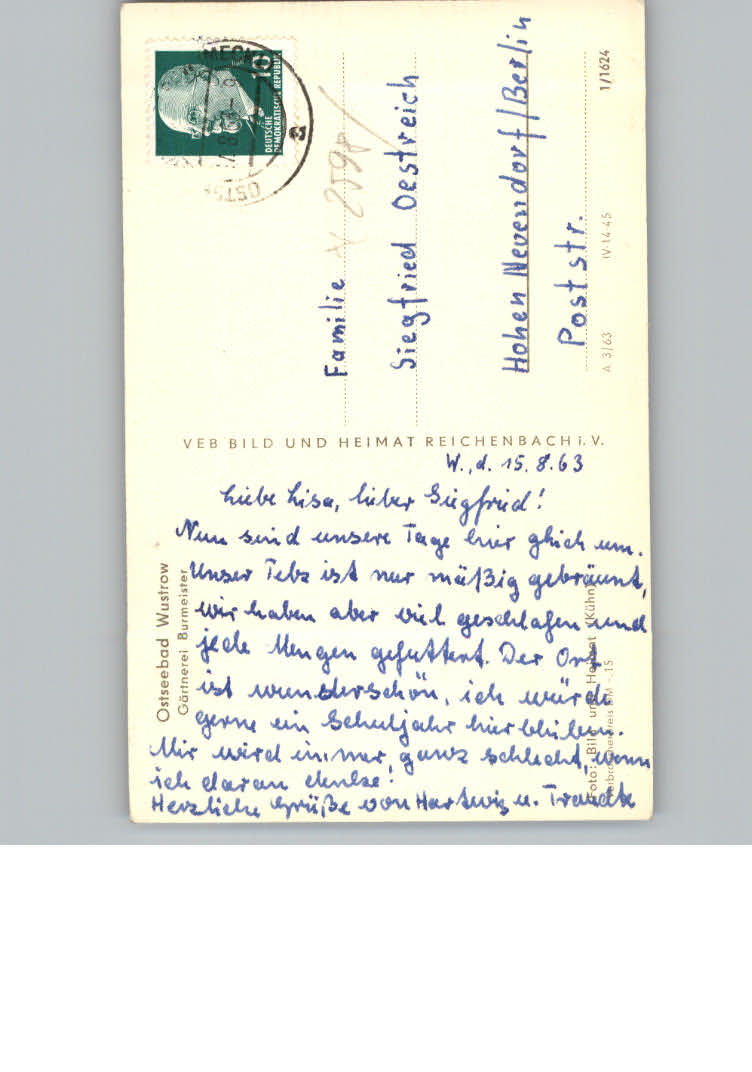 MECKL
10
DEUTSCHE
DEMOKRATISCHE REPUBLIK
OSTSE
a
2598
Familie
Siegfried Oestreich
Hohen Neuendorf/Berlin
Poststr.
1/1624
IV-14-45
A 3/63
VEB BILD UND HEIMAT REICHENBACH i. V.
Ostseebad Wustrow
Gärtnerei Burmeister
W., d. 15. 8. 63
Liebe Lisa, lieber Siegfried!
Nun sind unsere Tage hier gleich um.
Unser Tebs ist nur mäßig gebräunt,
wir haben aber viel geschlafen und
jede Mengen gefuttert. Der Ort
ist wunderschön, ich würde
gerne ein Schuljahr hier bleiben.
Mir wird immer ganz schlecht, wenn
ich daran denke!
Herzliche Grüße von Hartwig u. Traudte
Foto: Bild und Heimat (Kühn)
Verbraucherpreis DM -.15